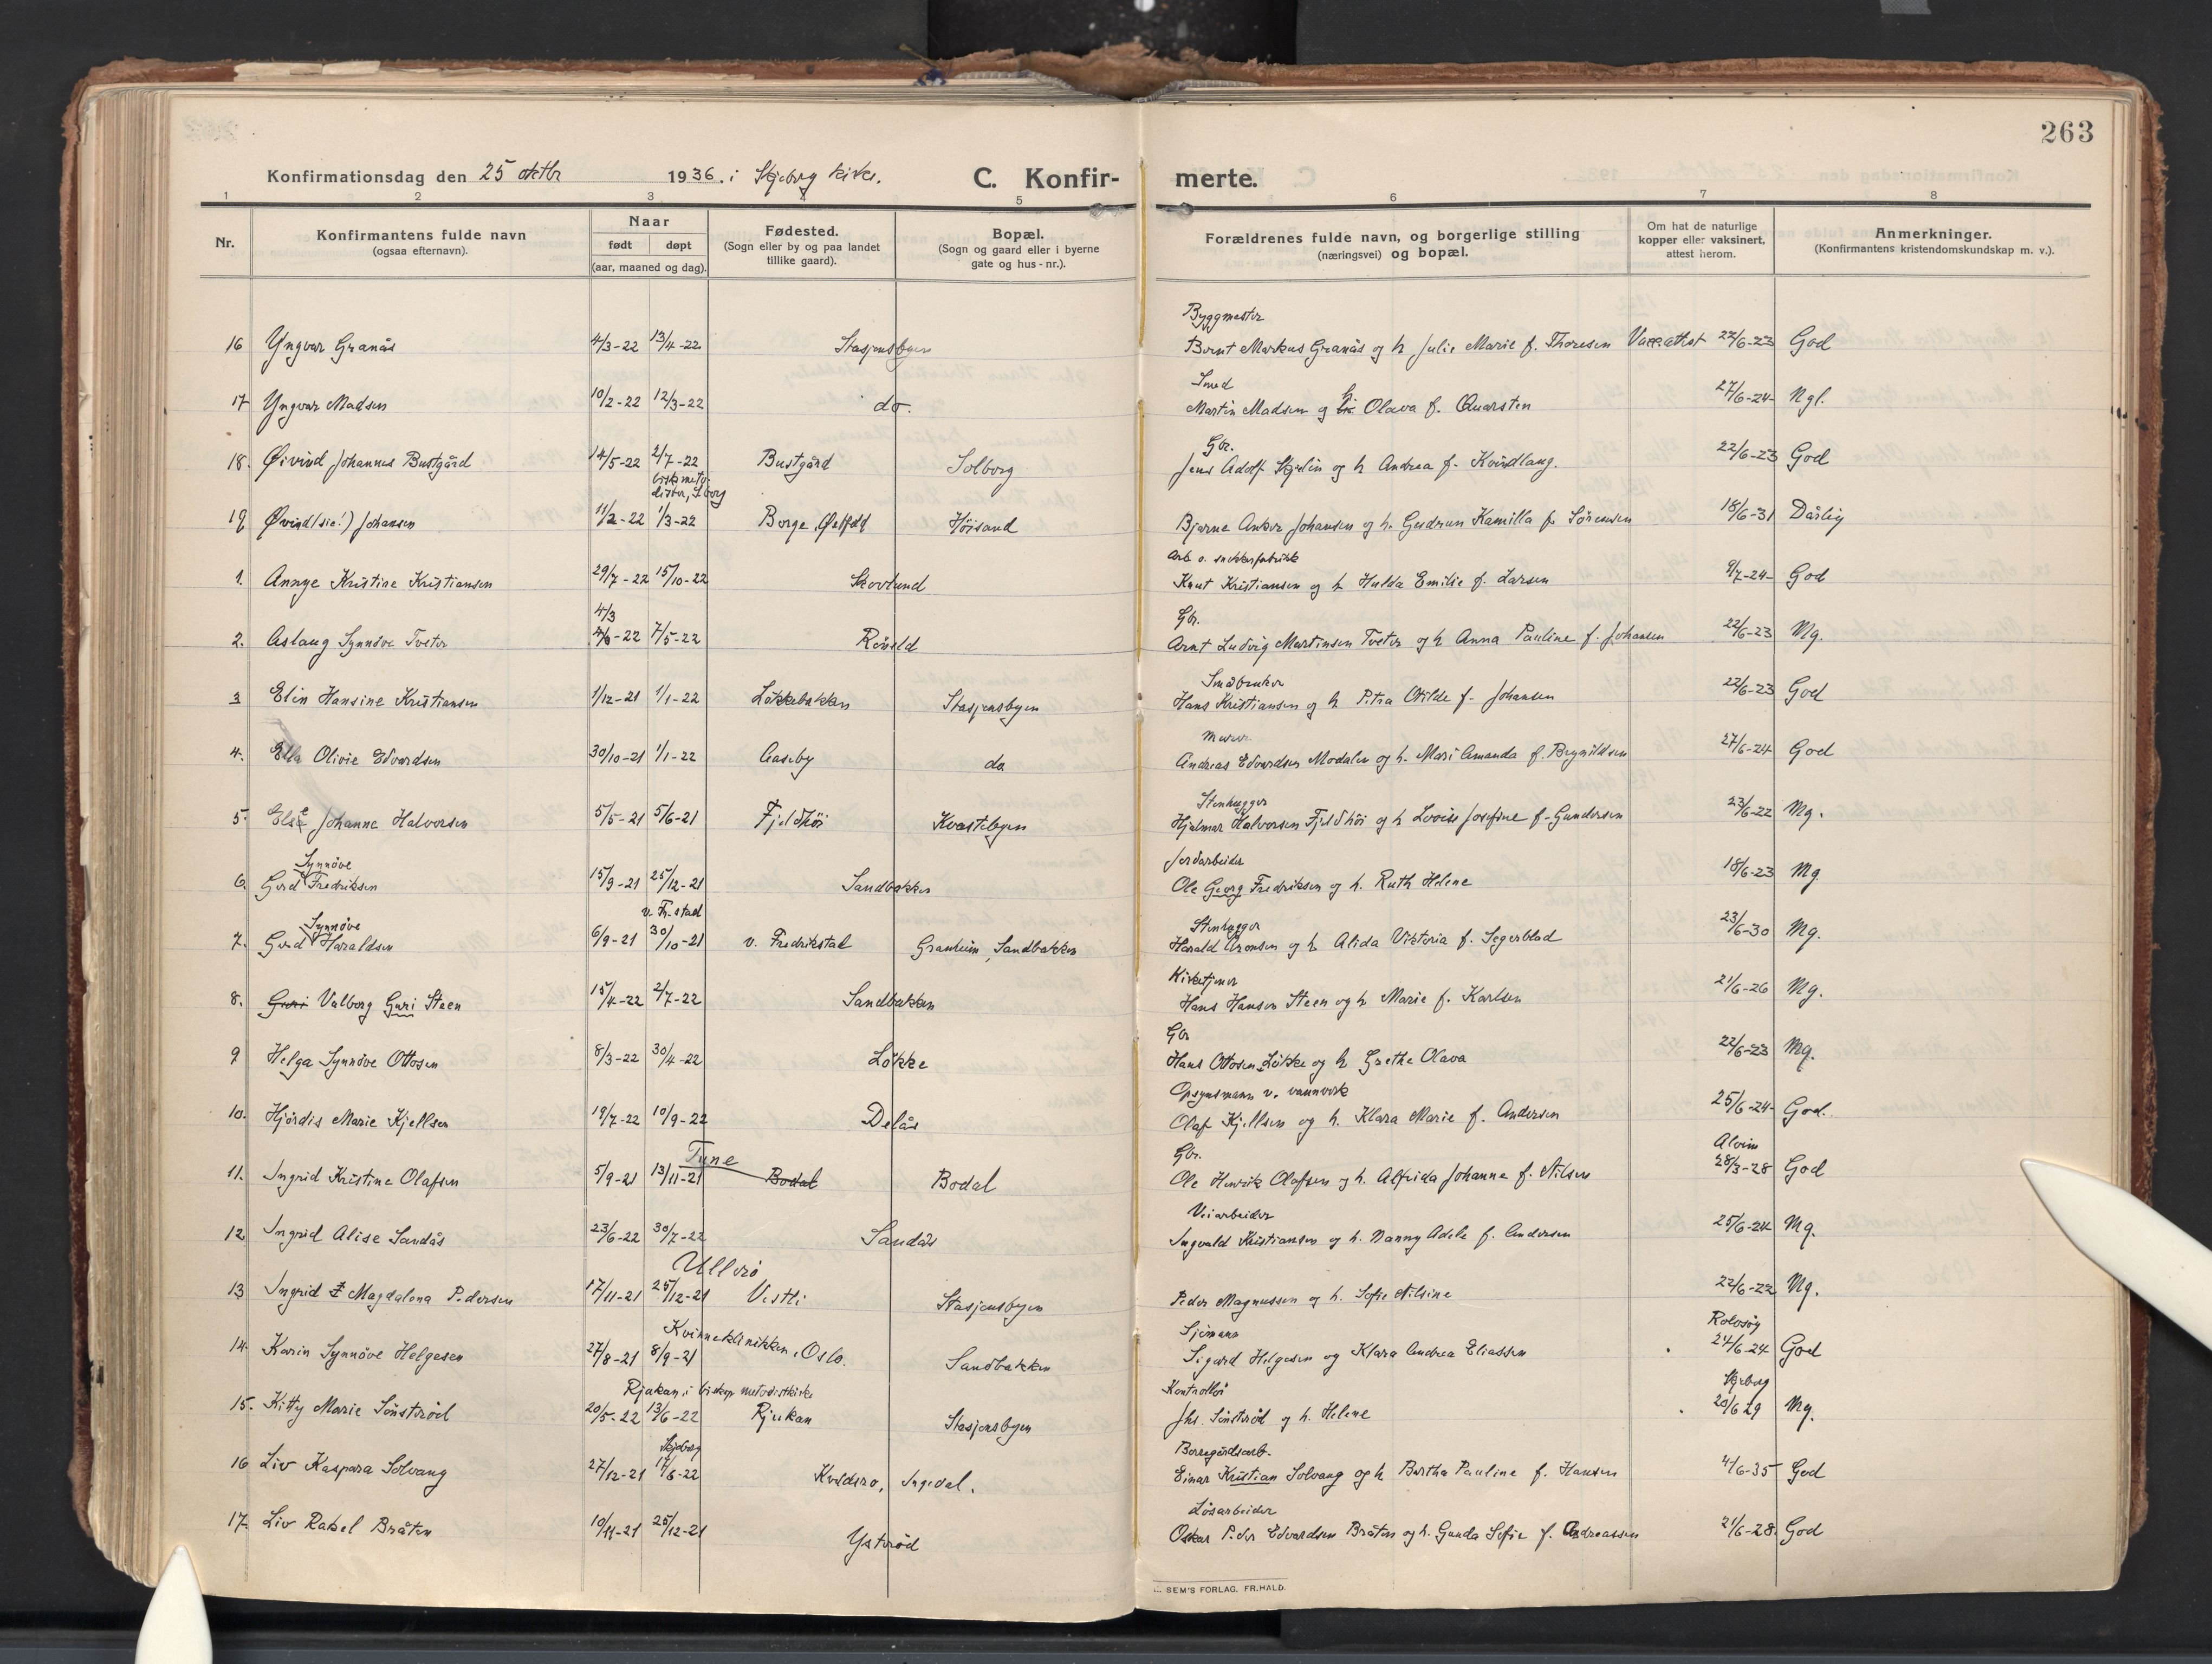 263
Konfirmationsdag den 25 oktbr 1936. i Skjeberg kirke. C. Konfir- merte.
1 2 3 4 5 6 7 8
Nr. Konfirmantens fulde navn (ogsaa efternavn). Naar født døpt (aar, maaned og dag). Fødested. (Sogn eller by og paa landet tillike gaard). Bopæl. (Sogn og gaard eller i byerne gate og hus-nr.). Forældrenes fulde navn, og borgerlige stilling (næringsvei) og bopæl. Om hat de naturlige kopper eller vaksinert, attest herom. Anmerkninger. (Konfirmantens kristendomskundskap m. v.).
Byggmester
16 Yngvar Granås 4/3-22 13/4-22 Stasjonsbyen Bernt Markus Granås og h Julie Marie f. Thoresen Vacc.attest 22/6-23 God
Smed
17 Yngvar Madsen 10/2-22 12/3-22 do. Martin Madsen og h. Olava f. Quarsten 27/6-24 Ngl.
Gbr.
18. Øivind Johannes Bustgård 14/5-22 2/7-22 Bustgård Solborg Jens Adolf Skjelin og h Andrea f. Kvindlaug. 22/6-23 God
bisk. meto-
dister, S.borg
19 Øvind (sic!) Johansen 11/2-22 1/3-22 Borge, Østfold Høisand Bjarne Anker Johansen og h. Gudrun Kamilla f. Sørensen 18/6-31 Dårlig
Arb. o. snekkerfabrikk
1. Annye Kristine Kristiansen 29/7-22 15/10-22 Skovlund Knut Kristiansen og h Hulda Emilie f. Larsen 9/7-24 God
4/3 Gbr.
2. Aslaug Synnöve Tveter 4/3-22 7/5-22 Röneld Arnt Ludvig Martinsen Tveter og h Anna Pauline f. Johansen 22/6-23 Mg.
Småbruker
3 Elin Hansine Kristiansen 1/12-21 1/1-22 Løkkebakken Stasjonsbyen Hans Kristiansen og h Petra Otilde f. Johansen 22/6-23 God
Murer
4. Ella Olivie Edvardsen 30/10-21 1/1-22 Aaseby do Andreas Edvardsen Modalen og h. Mari Amanda f. Brynildsen 27/6-24 God
Stenhugger
5. Else Johanne Halvorsen 5/5-21 5/6-21 Fjeldhöi Kvastebyen Hjalmar Halvorsen Fjeldhöi og h Lovise Josefine f. Gundersen 23/6-22 Mg.
Synnöve Jordarbeider
6. Gerd Fredriksen 15/9-21 25/12-21 Sandbakken Ole Georg Fredriksen og h. Ruth Helene 18/6-23 Mg
Synnöve v. Fr.stad Stenhugger
7. Gerd Haraldsen 6/9-21 30/10-21 v. Fredrikstad Granheim, Sandbakken Harald Aronsen og h Alida Viktoria f. Segerblad 23/6-30 Mg.
Kirketjener
8. Guri Valborg Guri Steen 15/4-22 2/7-22 Sandbakken Hans Hansen Steen og h Marie f. Karlsen 21/6-26 Mg.
Gbr
9 Helga Synnöve Ottosen 8/3-22 30/4-22 Løkke Hans Ottosen Løkke og h Grethe Olava 22/6-23 Mg.
Opsynsmann v. vannverk
10. Hjördis Marie Kjellsen 19/7-22 10/9-22 Delås Olaf Kjellsen og h. Klara Marie f. Andersen 25/6-24 God.
Tune Gbr. Alvim
11. Ingrid Kristine Olafsen 5/9-21 13/11-21 Bodal Bodal Ole Henrik Olafsen og h. Alfrida Johanne f. Nilsen 28/3-28 God
Veiarbeider
12 Ingrid Alise Sandås 23/6-22 30/7-22 Sandås Ingvald Kristiansen og h. Nanny Adele f. Andersen 25/6-24 Mg.
Ullerö
13 Ingrid Magdalena Pedersen 17/11-21 25/12-21 Vestli Stasjonsbyen Peder Magnussen og h. Sofie Nilsine 22/6-22 Mg.
Kvinneklinikken, Oslo. Sjömann Rolvsöy
14. Karin Synnöve Helgesen 27/8-21 8/9-21 Sandbakken Sigurd Helgesen og Klara Andrea Eliassen 24/6-24 God
Rjukan, i biskop metodistkirke Kontrollör Skjeberg
15. Kitty Marie Sönsteröd 20/5-22 13/6-22 Rjukan Stasjonsbyen Jhs. Sönsteröd og h. Helene 20/6 29 Mg.
Skjeberg Borregårdsarb.
16 Liv Kaspara Solvang 27/12-21 17/6-22 Kveldsro, Ingedal. Einar Kristian Solvang og h Bertha Pauline f. Hansen 4/6-35 God
Løsarbeider
17. Liv Rakel Bråten 10/11-21 25/12-21 Ysteröd Oskar Peder Edvardsen Bråten og h. Gunda Sofie f. Andreassen 21/6-28. God
SEM'S FORLAG. FR.HALD.